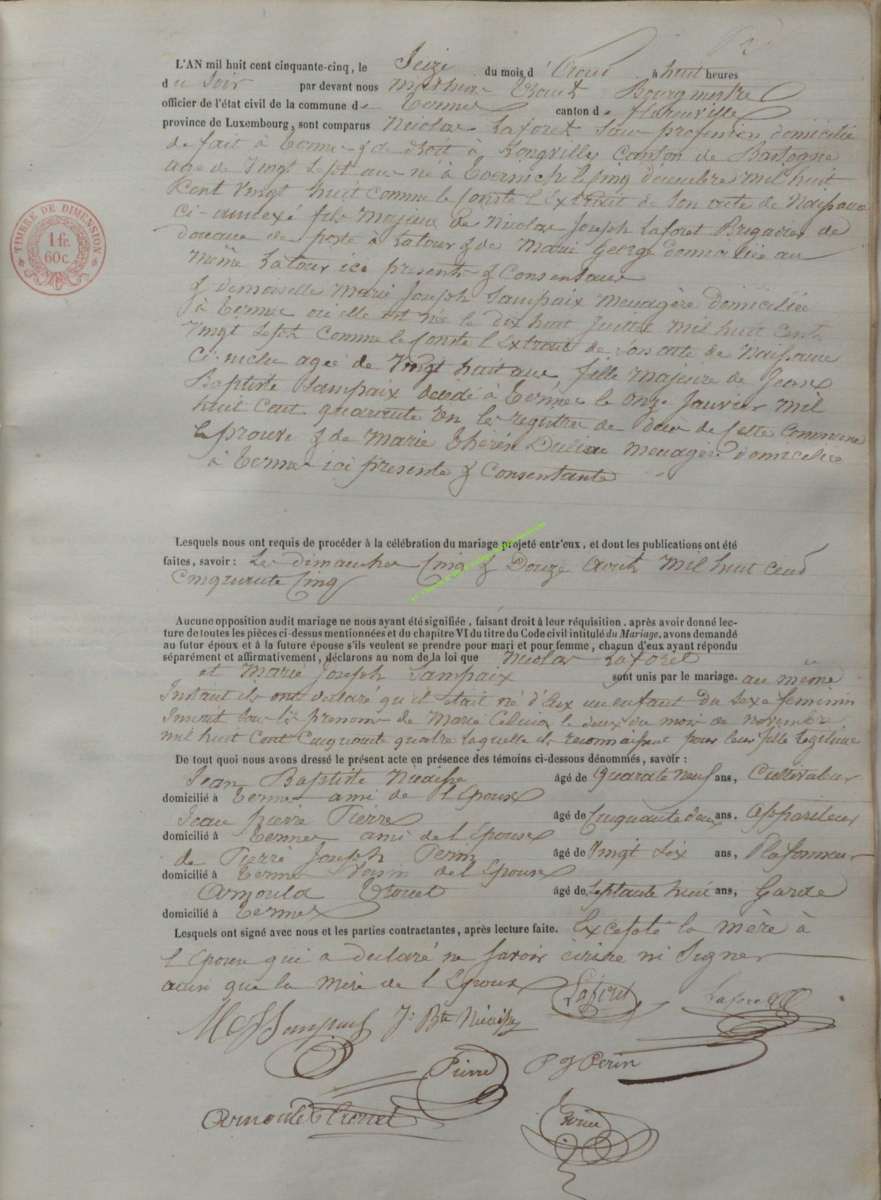 L'AN mil huit cent cinquante-cinq, le Seize du mois d' à huit heures
du Soir par devant nous Bourgmestre
officier de l'état civil de la commune de Termes canton de florenville
province de Luxembourg, sont comparus Nicolas Laforet Sans profession domicilié
de fait à Termes & de droit à Longvilly Canton de Bastogne
age de Vingt Sept ans né à le cinq decembre mil huit
Cent Vingt huit comme le Conste l'Extrait de Son acte de Naissance
ci-annexé fils Majeur de Nicolas Joseph Laforet Brigadier de
Douane de poste à Latour & de Marie George domiciliée au
même Latour ici présents & Consentans
& demoiselle Marie Joseph Sampaix Menagère domiciliée
à Termes ou elle est née le dix huit Juillet Mil huit Cent
Vingt Sept Comme le Conste l'Extrait de Son acte de Naissance
agée de Vingt huit ans fille Majeure de Jean
Baptiste Sampaix décédé à Termes le onze Janvier Mil
huit Cent quarante les registres de de Cette Commune
le prouve & de Marie Ménagère domiciliée
à Termes ici présente & Consentante
Lesquels nous ont requis de procéder à la célébration du mariage projeté entr'eux, et dont les publications ont été
faites, savoir : Les dimanches Cinq & Douze Mil huit cent
Cinquante Cinq
Aucune opposition audit mariage ne nous ayant été signifiée, faisant droit à leur réquisition, après avoir donné lec-
ture de toutes les pièces ci-dessus mentionnées et du chapitre VI du titre du Code civil intitulé du Mariage, avons demandé
au futur époux et à la future épouse s'ils veulent se prendre pour mari et pour femme, chacun d'eux ayant répondu
séparément et affirmativement, déclarons au nom de la loi que Nicolas Laforet
et Marie Joseph Sampaix sont unis par le mariage. au même
Instant ils ont déclaré qu'il était né d'Eux un enfant du sexe feminin
Inscrit Sous les prenoms de Marie le deux du mois de novembre
mil huit Cent Cinquante quatre laquelle ils reconnaissent pour leur fille légitime
De tout quoi nous avons dressé le présent acte en présence des témoins ci-dessous dénommés, savoir :
Jean Baptiste Nicaise âgé de Quarante neuf ans, Cultivateur
domicilié à Termes ami de l'Epoux
Jean Pierre Pierre âgé de Cinquante deux ans,
domicilié à Termes ami de l'Epouse
de Pierre Joseph Perin âgé de Vingt Six ans, Plafonneur
domicilié à Termes Voisin de l'Epoux
Arnould âgé de Septante huit ans, Garde
domicilié à Termes
Lesquels ont signé avec nous et les parties contractantes, après lecture faite. Excepté la mère à
l'Epoux qui a declaré ne Savoir écrire ni Signer
ainsi que la Mère de l'Epoux
Laforet Laforet
M J Sampaix J. Bte Nicaise
Pierre P J Perin
Arnould
TIMBRE DE DIMENSION
1 fr.
60 c.